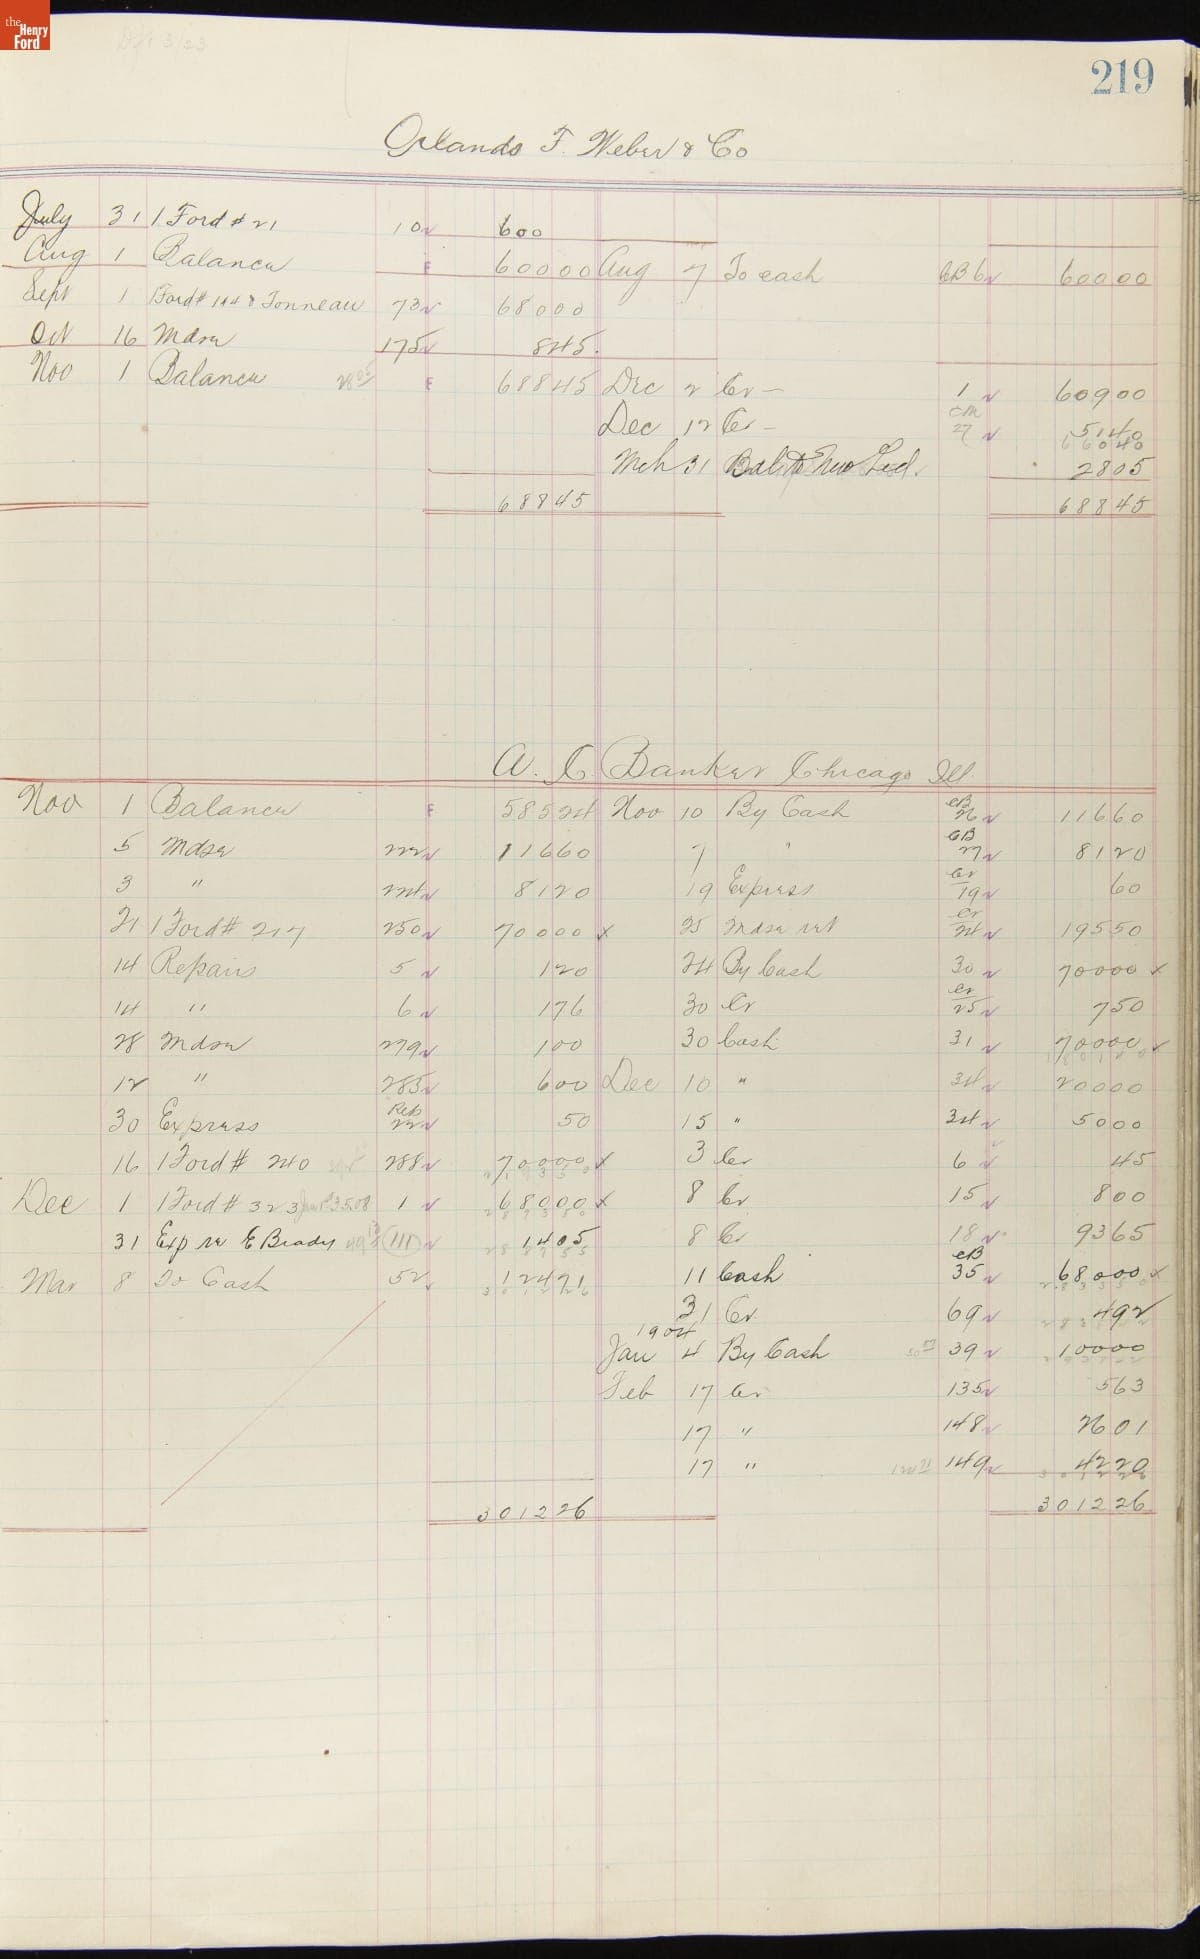 the Henry Ford
219
Orlando F. Weber & Co
July 31 1 Ford # 21 10 600
Aug 1 Balance F 60000 Aug 7 To cash CB 6 60000
Sept 1 1 Ford # 114 & Tonneau 73 68000
Oct 16 Mdse 175 845
Nov 1 Balance 2805 F 68845 Dec 2 Cr - 1 60900
Dec 12 Cr - CM 27 5140
66040
Mch 31 Bal to New Led. 2805
68845 68845
A. C. Banker Chicago Ill.
Nov 1 Balance F 58524 Nov 10 By Cash CB 26 11660
5 Mdse 222 11660 7 " CB 27 8120
3 " 224 8120 19 Express Cr 19 60
21 1 Ford # 217 250 70000 x 25 Mdse ret Cr 24 19550
14 Repairs 5 120 24 By Cash 30 70000 x
14 " 6 176 30 Cr Cr 25 750
28 Mdse 279 100 30 Cash 31 70000
12 " 285 600 Dec 10 " 34 20000
30 Express Rep 22 50 15 " 34 5000
16 1 Ford # 240 288 70000 x 3 Cr 6 45
Dec 1 1 Ford # 323 1 68000 x 8 Cr 15 800
31 Exp re E Brady 111 1405 8 Cr 18 9365
Mar 8 To Cash 52 12471 11 Cash CB 35 68000 x
31 Cr 69 492
1904
Jan 4 By Cash 39 10000
Feb 17 Cr 135 563
17 " 148 2601
17 " 12471 149 4220
301226 301226